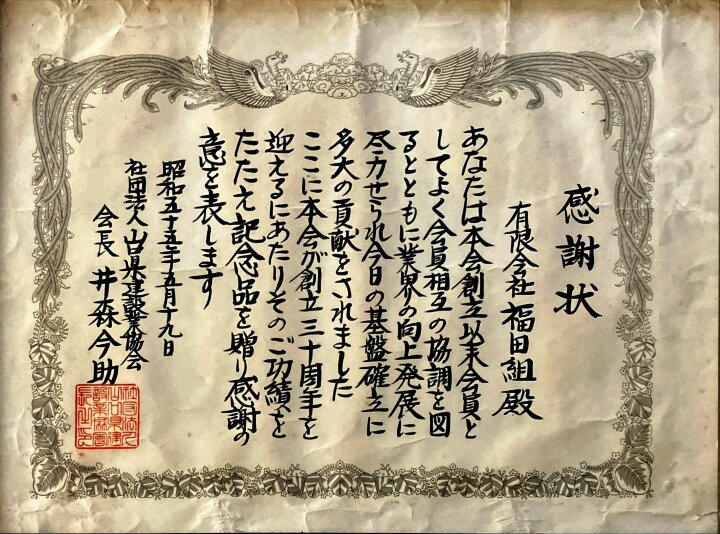 感謝状
有限会社 福田組 殿
あなたは本会創立以来会員と
してよく会員相互の協調を図
るとともに業界の向上発展に
尽力せられ今日の基盤確立に
多大の貢献をされました
ここに本会が創立三十周年を
迎えるにあたりそのご功績を
たたえ記念品を贈り感謝の
意を表します
昭和五十五年五月十九日
社団法人山口県建設業協会
会長 井森今助
社団法人
山口県建
設業協会
長之印